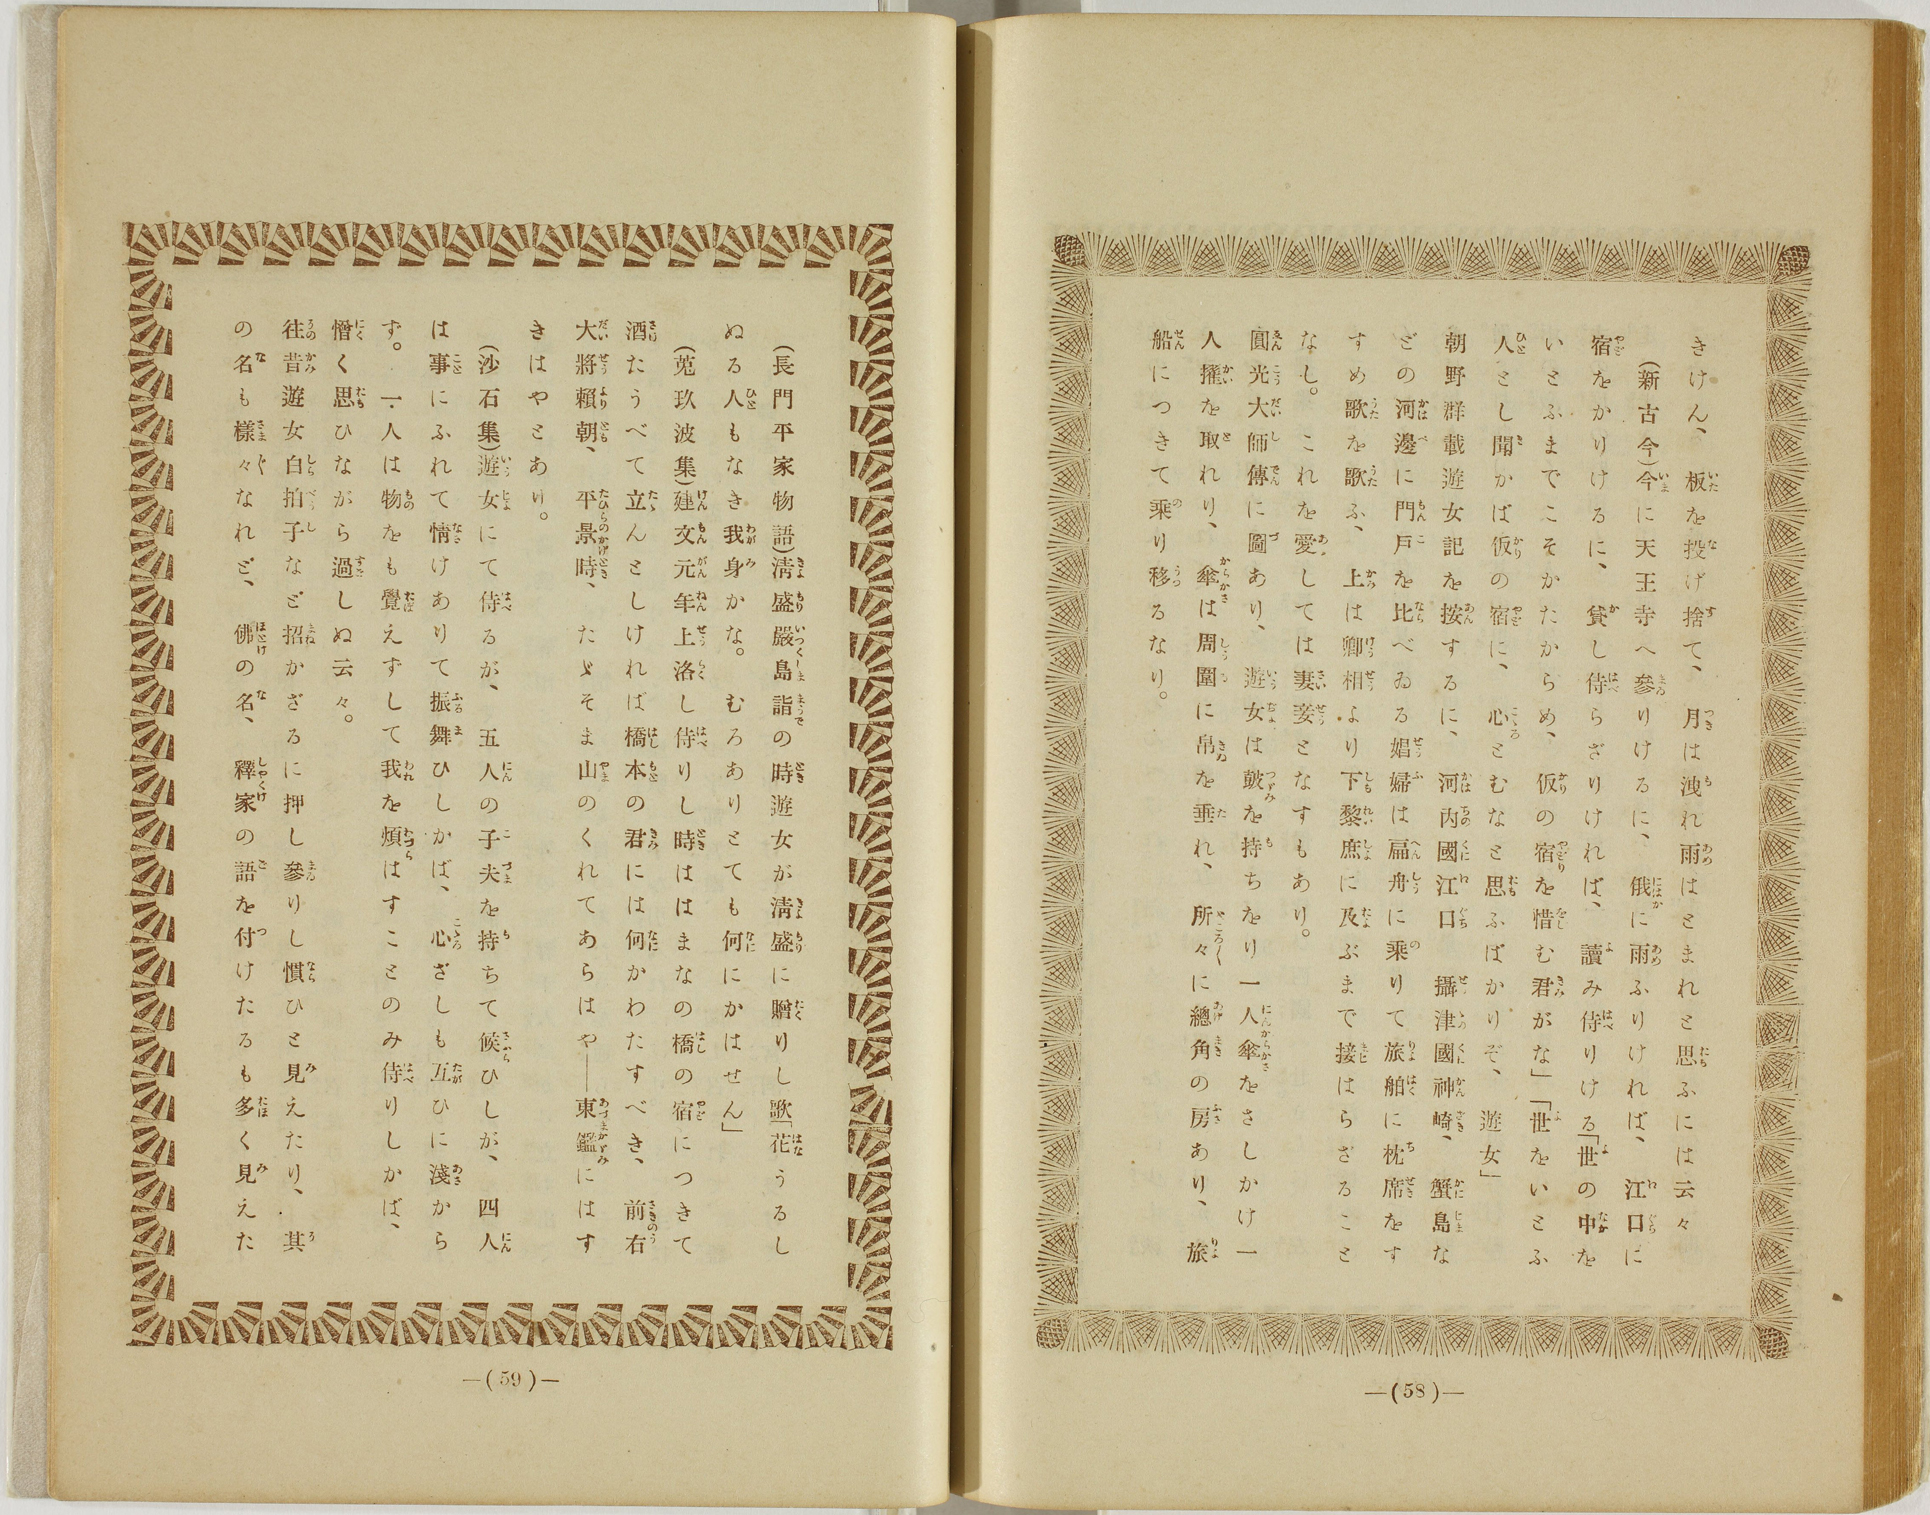 きけん、板を投げ捨て、月は洩れ雨はとまれと思ふには云々
(新古今)今に天王寺へ參りけるに、俄に雨ふりければ、江口に
宿をかりけるに、貸し侍らざりければ、讀み侍りける「世の中を
いとふまでこそかたからめ、仮の宿を惜む君がな」「世をいとふ
人とし聞かば仮の宿に、心とむなと思ふばかりぞ、遊女」
朝野群載遊女記を按するに、河内國江口 攝津國神崎、蟹島な
どの河邊に門戸を比べゐる娼婦は扁舟に乘りて旅舶に枕席をす
すめ歌を歌ふ、上は卿相より下黎庶に及ぶまで接はらざること
なし。これを愛しては妻妾となすもあり。
圓光大師傳に圖あり、遊女は皷を持ちをり一人傘をさしかけ一
人㩶を取れり、傘は周圍に帛を垂れ、所々に總角の房あり、旅
船につきて乘り移るなり。
—(58)—
(長門平家物語)淸盛嚴島詣の時遊女が淸盛に贈りし歌「花うるし
ぬる人もなき我身かな。むろありとても何にかはせん」
(莵玖波集)建文元年上洛し侍りし時はまなの橋の宿につきて
酒たうべて立んとしければ橋本の君には何かわたすべき、前右
大將賴朝、平景時、たゞそま山のくれてあらはや——東鑑にはす
きはやとあり。
(沙石集)遊女にて侍るが、五人の子夫を持ちて候ひしが、四人
は事にふれて情けありて振舞ひしかば、心ざしも互ひに淺から
ず。一人は物をも覺えずして我を煩はすことのみ侍りしかば、
憎く思ひながら過しぬ云々。
往昔遊女白拍子など招かざるに押し參りし慣ひと見えたり、其
の名も樣々なれど、佛の名、釋家の語を付けたるも多く見えた
—(59)—